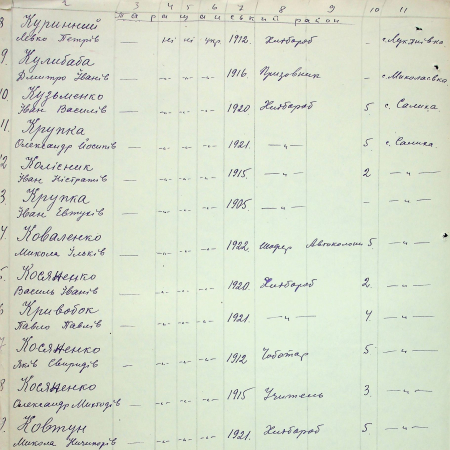 2 3 4 5 6 7 8 9 10 11
Таращанський район
8 Куринний
Левко Петрів — ні ні укр 1912. Хлібороб - с Лук'янівка
9. Кулибаба
Дмитро Іванів — -"- -"- -"- 1916. Призовник - с. Миколаєвка
10. Кузьменко
Іван Василів — -"- -"- -"- 1920. Хлібороб 5 с. Салиха
11. Крупка
Олександр Йосипів — -"- -"- -"- 1921. —"— 5 с. Салиха.
12 Колісник
Іван Ністратів — -"- -"- -"- 1915 —"— 2 —"—
3. Крупка
Іван Евтухів — -"- -"- -"- 1905. —"— - —"—
4. Коваленко
Микола Ільків — -"- -"- -"- 1922. шофер Автоколони 5 —"—
5. Косяненко
Василь Іванів — -"- -"- -"- 1920. Хлібороб 2. —"—
6 Кривобок
Павло Павлів — -"- -"- -"- 1921. —"— 4. —"—
7 Косяненко
Яків Свиридів — -"- -"- -"- 1912 Чоботар 5 —"—
8 Косяненко
Олександр Микодів — -"- -"- -"- 1915 Учитель 3. —"—
9. Ковтун
Микола Ничипорів — -"- -"- -"- 1921. Хлібороб 5 —"—